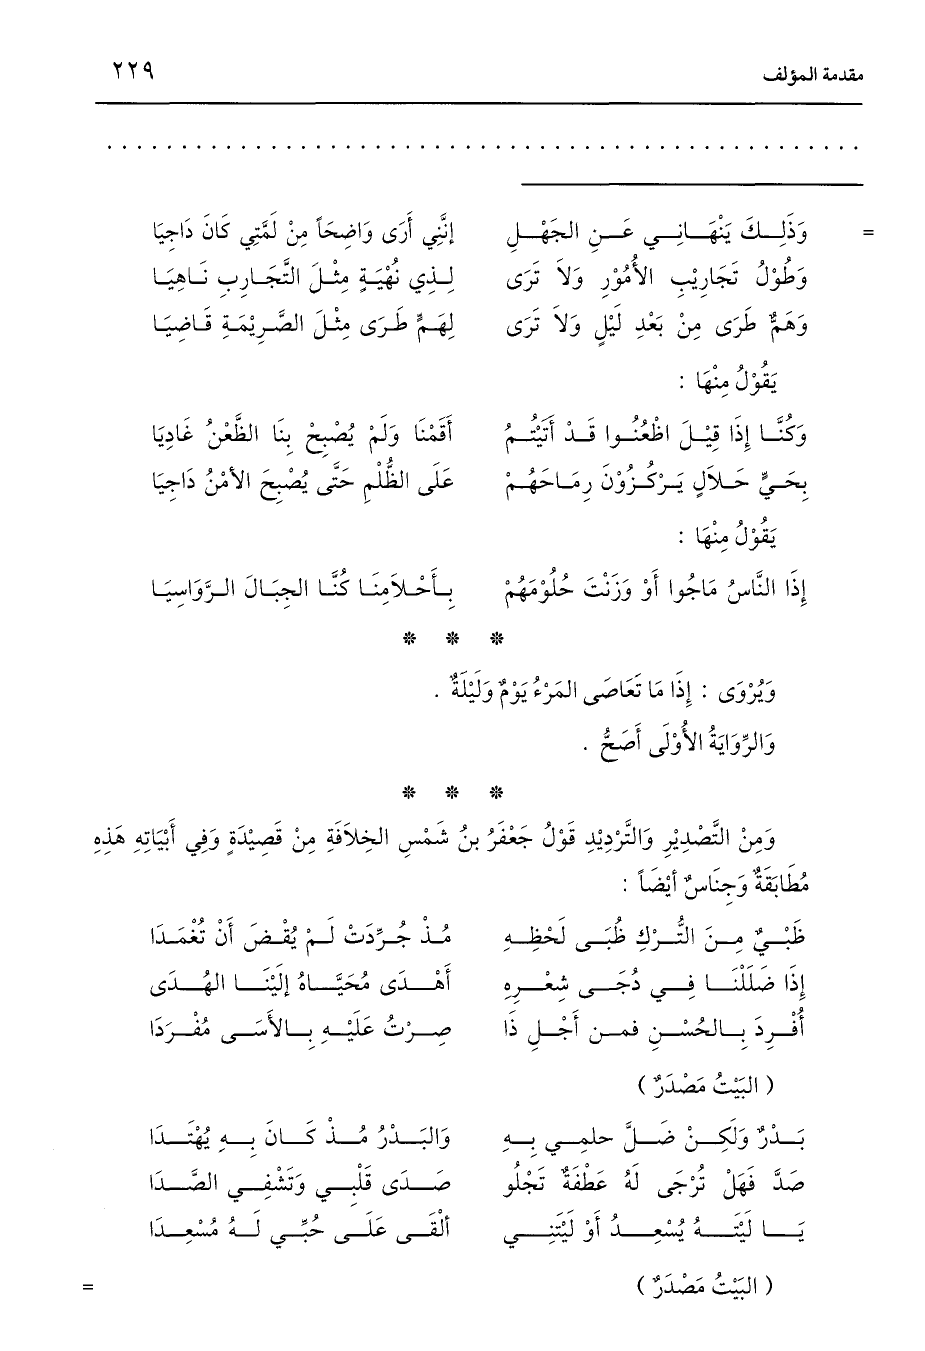 مقدمة المؤلف ٢٢٩
. . . . . . . . . . . . . . . . . . . . . . . . . . . . . . . . . . . . . . . . . . . . . . . . . .
= وَذَلِكَ يَنْهَانِي عَنِ الجَهْلِ إِنَّنِي أَرَى وَاضِحَاً مِنْ لَمَّتِي كَانَ دَاجِيَا
وَطُوْلُ تَجَارِيْبِ الأُمُوْرِ وَلاَ تَرَى لِذِي نُهْيَةٍ مِثْلَ التَّجَارِبِ نَاهِيَا
وَهَمٌّ طَرَى مِنْ بَعْدِ لَيْلٍ وَلاَ تَرَى لِهَمٍّ طَرَى مِثْلَ الصَّرِيْمَةِ قَاضِيَا
يَقُوْلُ مِنْهَا :
وَكُنَّا إِذَا قِيْلَ اظْعُنُوا قَدْ أَتَيْتُمُ أَقَمْنَا وَلَمْ يُصْبِحْ بِنَا الظَّعْنُ غَادِيَا
بِحَيٍّ حَلاَلٍ يَرْكُزُوْنَ رِمَاحَهُمْ عَلَى الظُّلْمِ حَتَّى يُصْبِحَ الأَمْنُ دَاجِيَا
يَقُوْلُ مِنْهَا :
إِذَا النَّاسُ مَاجُوا أَوْ وَزَنْتَ حُلُوْمَهُمْ بِأَحْلاَمِنَا كُنَّا الجِبَالَ الرَّوَاسِيَا
* * *
وَيُرْوَى : إِذَا مَا تَقَاضَى المَرْءُ يَوْمٌ وَلَيْلَةٌ .
وَالرِّوَايَةُ الأُوْلَى أَصَحُّ .
* * *
وَمِنْ التَّصْدِيْرِ وَالتَّرْدِيْدِ قَوْلُ جَعْفَرُ بنُ شَمْسِ الخِلاَفَةِ مِنْ قَصِيْدَةٍ وَفِي أَبْيَاتِهِ هَذِهِ
مُطَابَقَةٌ وَجِنَاسٌ أَيْضَاً :
ظَبْيٌ مِنَ التُّرْكِ ظُبَى لَحْظِهِ مُذْ جُرِّدَتْ لَمْ يُقْضَ أَنْ تُغْمَدَا
إِذَا ضَلَلْنَا فِي دُجَى شعْرِهِ أَهْدَى مُحَيَّاهُ إِلَيْنَا الهُدَى
أُفْرِدَ بِالحُسْنِ فمن أَجْلِ ذَا صِرْتُ عَلَيْهِ بِالأَسَى مُفْرَدَا
( البَيْتُ مَصْدَرٌ )
بَدْرٌ وَلَكِنْ ضَلَّ حلمِي بِهِ وَالبَدْرُ مُذْ كَانَ بِهِ يُهْتَدَا
صَدَّ فَهَلْ تُرْجَى لَهُ عَطْفَةٌ تَجْلُو صَدَى قَلْبِي وَتَشْفِي الصَّدَا
يَا لَيْتَهُ يُسْعِدُ أَوْ لَيْتَنِي أَلْقَى عَلَى حُبِّي لَهُ مُسْعِدَا
( البَيْتُ مَصْدَرٌ ) =